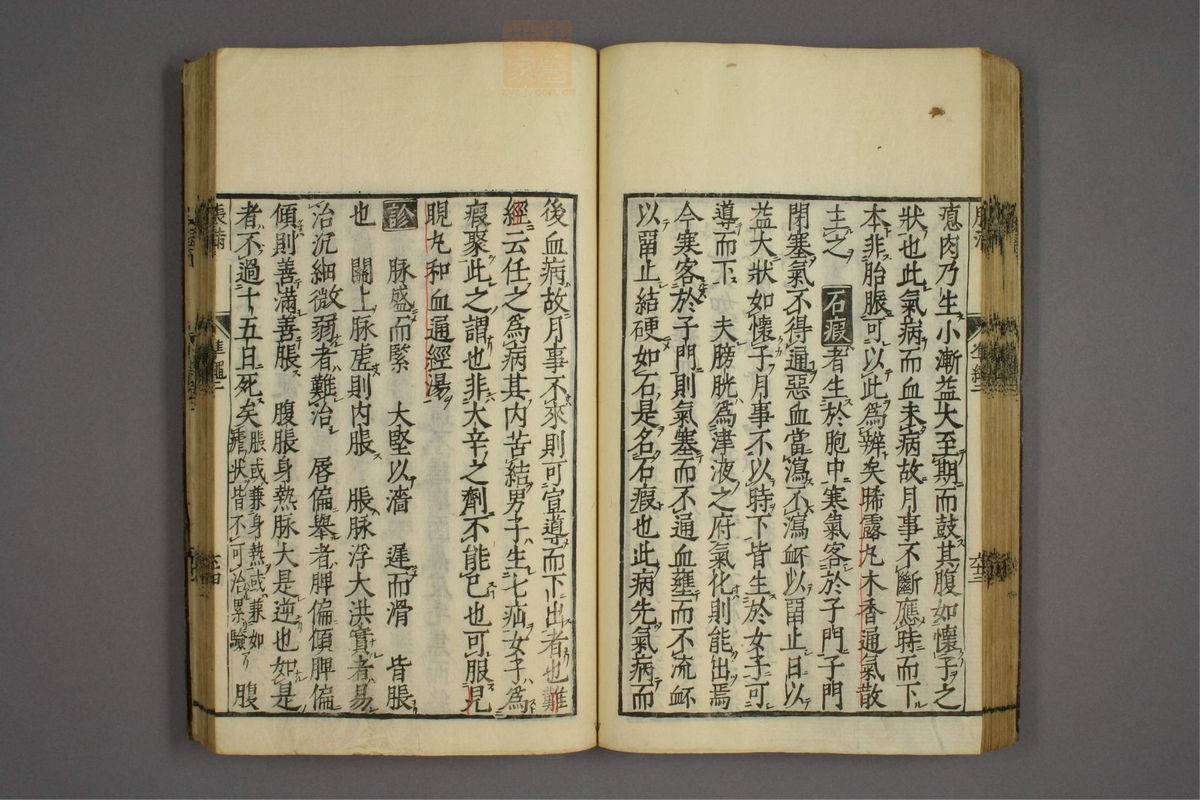 瘜肉乃生小漸益大至期而鼓其腹如懷子之
狀也此氣病而血未病故月事不斷應時而下
本非胎脤可以此為辨矣晞露丸木香通氣散
主之 石瘕者生於胞中寒氣客於子門子門
閉塞氣不得通惡血當瀉不瀉衃以留止日以
益大狀如懷子月事不以時下皆生於女子可
導而下 夫膀胱為津液之府氣化則能出焉
今寒客於子門則氣塞而不通血壅而不流衃
以留止結硬如石是名石瘕也此病先氣病而
後血病故月事不來則可宣導而下出者也難
經云任之為病其内苦結男子生七疝女子為
瘕聚此之謂也非大辛之劑不能已也可服見
睍丸和血通經湯
診 脉盛而緊 大堅以濇 遲而滑 皆脹
也 關上脉虛則内脹 脹脉浮大洪實者易
治沉細微弱者難治 唇偏舉者脾偏傾脾偏
傾則善滿善脹 腹脹身熱脉大是逆也如是
者不過十五日死矣脹或兼身熱或兼如
瘧狀皆不可治累驗 腹